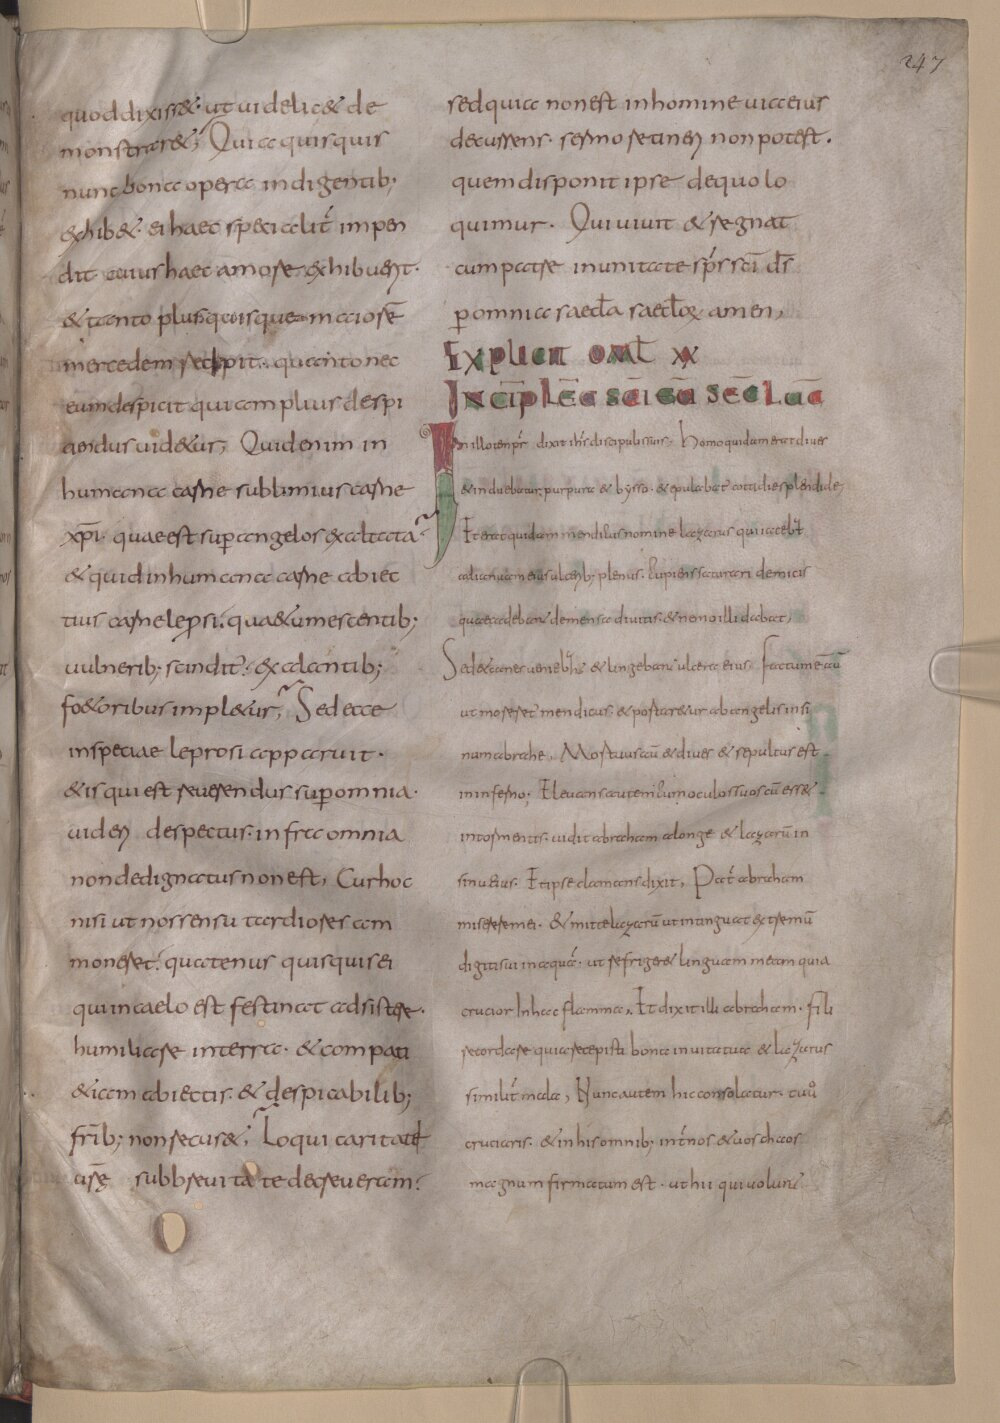 247
quod dixiss&. ut uidelic& de
monstrar&; Quia quisquis
nunc bona opera indigentib;
exhib&. ei haec specialit̄ impen
dit cuius haec amore exhibuerit.
& tanto plus quisque maiorē
mercedem recipit. quanto nec
eum despicit qui amplius despi
ciendus uid&ur; Quid enim in
humana carne sublimius carne
xp̄i. quae est super angelos exaltata?
& quid in humana carne abiec
tius carne leprosi. quae tumescentib;
uulnerib; scinditur. exalantib;
foetoribus impl&ur; Sed ecce
in speciae leprosi apparuit.
& is qui est reuerendus super omnia.
uideri despectus. infra omnia
non dedignatus non est, Cur hoc
nisi ut nos sensu tardiores am
moneret. quatenus quisquis ei
qui in caelo est festinat adsistere.
humiliare in terra. & compati
etiam abiectis. & despicabilib;
fr̄ib; non recus&; Loqui caritati
ur̄ę sub breuitate decreueram.
sed quia non est in homine uia eius
decurrens. sermo retineri non potest.
quem disponit ipse de quo lo
quimur. Qui uiuit & regnat
cum patre in unitate sp̄s sc̄i d̄s
per omnia saecl̄a saecl̄orum amen,
EXPLICIT OML̄ XX
INCIP̄ LEC̄ SC̄I EŪ SEC̄ LUC̄
In illo temp̄r dixit ih̄s discipulis suis, Homo quidam erat diues
& induebatur purpura & bysso. & epulabat̄ cottidie splendide,
Et erat quidam mendicus nomine lazarus qui iaceb̄t
ad ianuam eius ulcerib; plenus. Cupiens saturari de micis
quae cadebant de mensa diuitis. & nemo illi dabat,
Sed & canes ueniebant & lingebant ulcera eius. Factum ē aū
ut moreret̄ mendicus. & portar&ur ab angelis in si
num abrahe. Mortuus aū & diues & sepultus est
in inferno; Eleuans autem lum oculos suos cū ess&
in tormentis. uidit abraham a longe & lazarū in
sinu eius. Et ipse clamans dixit, Pat̄ abraham
miserere mei. & mitte lazarū ut intinguat extremū
digiti sui in aquā. ut refriger& linguam meam quia
crucior In hac flamma. Et dixit illi abraham. fili
recordare quia recepisti bona in uita tua & lazarus
similit̄ mala, Nunc autem hic consolatur. tu uo
cruciaris. & in his omnib; int̄ nos & uos chaos
magnum firmatum est. ut hii qui uolunt